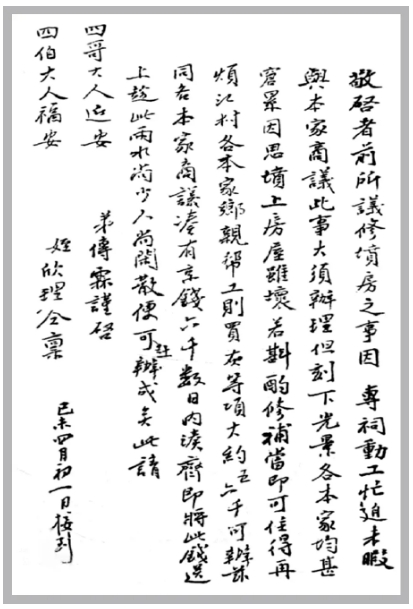 敬啓者前所議修墳房之事因 專祠動工忙迫未暇
與本家商議此事大須辦理但刻下光景各本家均甚
窘累因思墳上房屋雖壞若斟酌修補當即可住得再
煩江村各本家鄉親幫工則買灰等項大約五六千可辦茲
同各本家商議湊有京錢六千數日內湊齊即將此錢送
上趁此雨水尚少人尚閒散便可趕辦成矣此請
四哥大人近安
弟傳霖謹啓
四伯大人福安
姪欣理仝稟
己未四月初一日接到